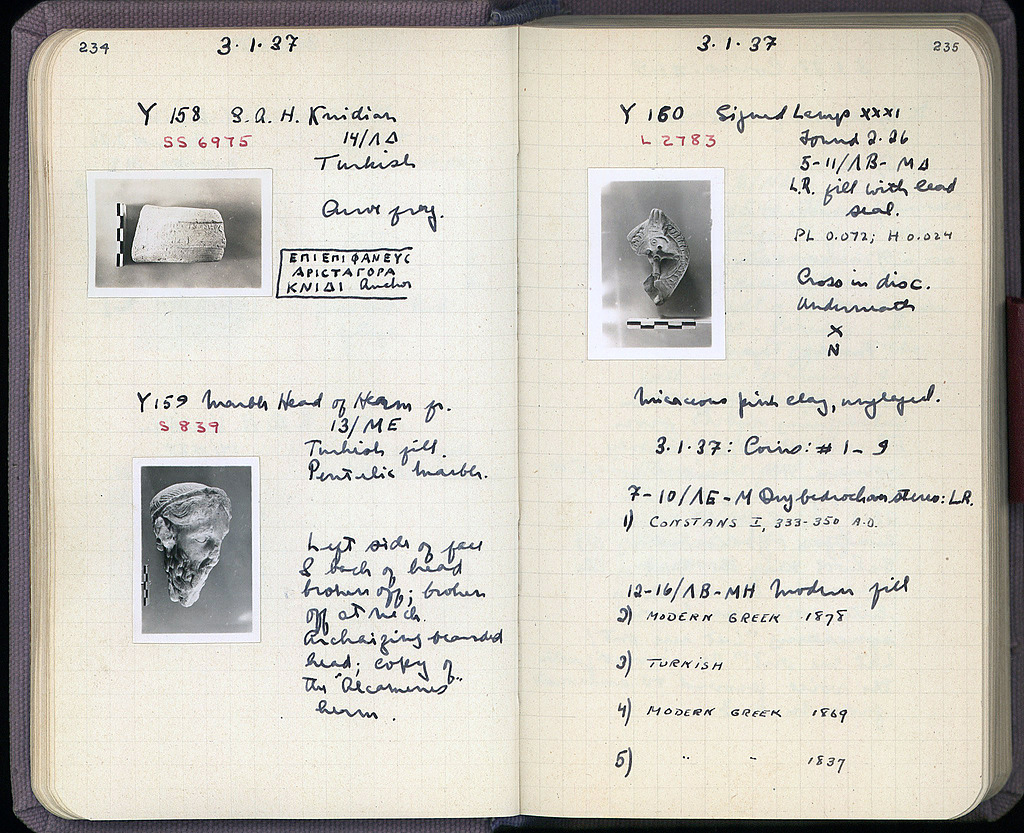 234
3·1·37
Y 158 S.A.H. Knidian
SS 6975
14/ΛΔ
Turkish
frag.
ΕΠΙΕΠΙΦΑΝΕΥС
ΑΡΙСΤΑΓΟΡΑ
ΚΝΙΔΙ Anchor
Y159 Marble Head of Herm fr.
S 839
13/ΜΕ
Turkish fill.
Pentelic marble.
Left side of face
& back of head
broken off; broken
off at neck.
Archaizing bearded
head; copy of
the "Alcamenes"
herm.
3·1·37
235
Y 160 Signed Lamp XXXI
L 2783
Found 2·26
5-11/ΛΒ-ΜΔ
L.R. fill with lead
seal.
PL 0.072; H 0.024
Cross in disc.
Underneath
X
N
Micaceous pink clay, unglazed.
3·1·37: Coins: # 1-9
7-10/ΛΕ-Μ Dug bedrock on stereo: L.R.
1) CONSTANS I, 333-350 A.D.
12-16/ΛΒ-ΜΗ Modern fill
2) MODERN GREEK 1878
3) TURKISH
4) MODERN GREEK 1869
5) " " 1837